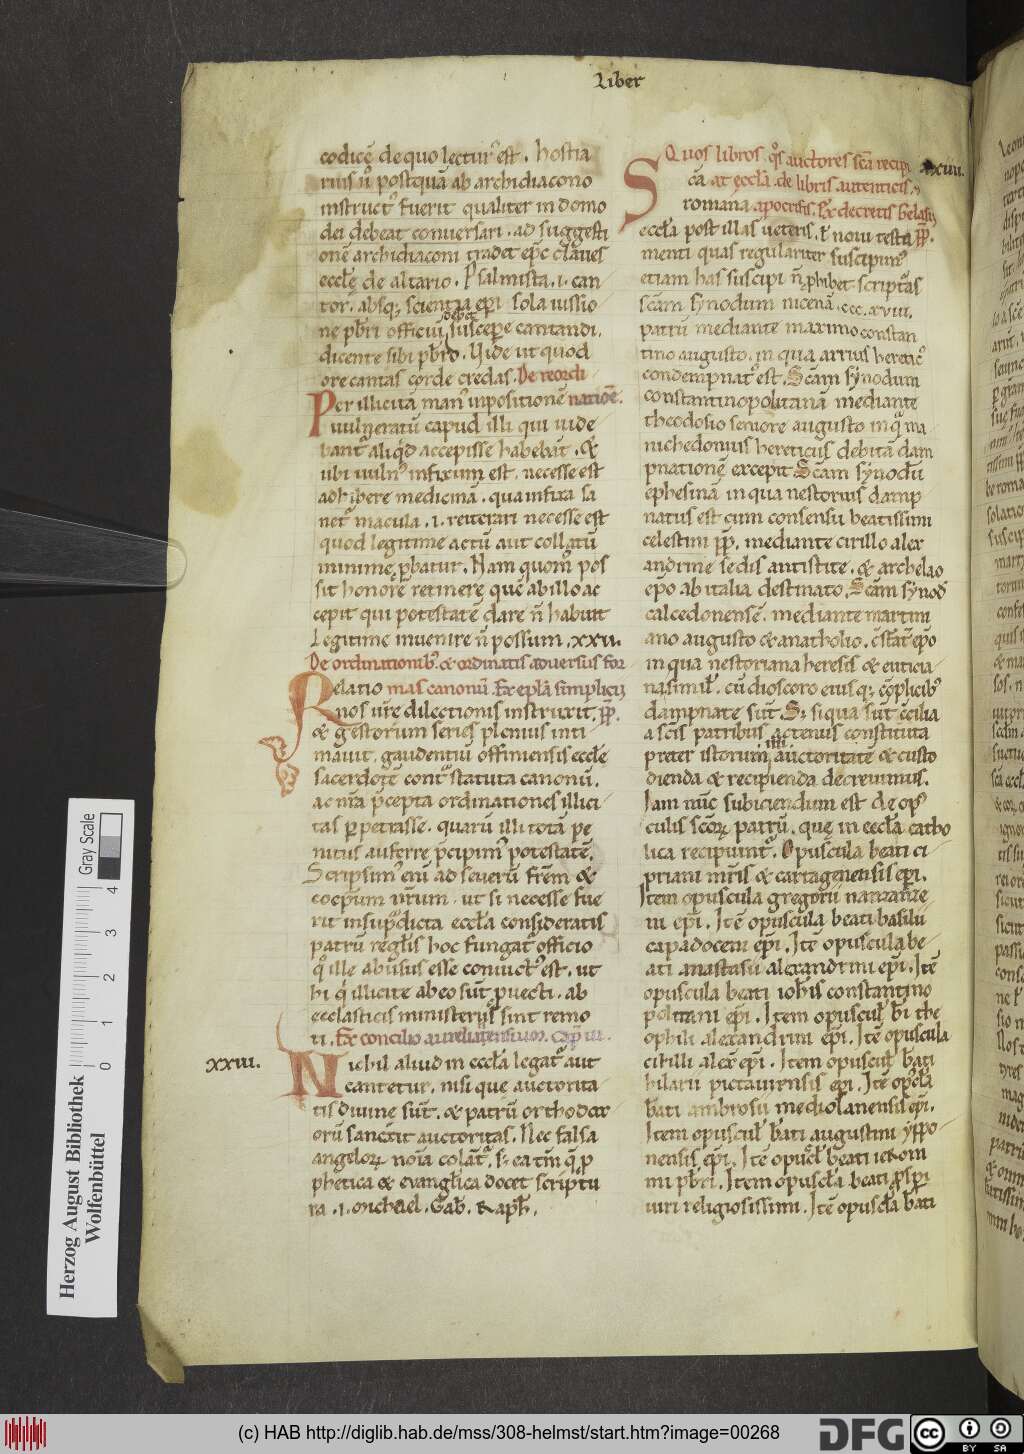 Liber
codicē de quo lectur᾽ est . hostia
rius n̄ postquā ab archidiacono
instruct᾽ fuerit qualiter in domo
dei debeat conuersari . ad suggesti
onē archidiaconi tradet ep̄c claues
eccl̄e de altario . Psalmista .i. can
tor . absq; scientia ep̄i sola iussio
ne pb̄ri officiū suscepe cantandi .
debet
dicente sibi pb̄ro . Vide ut quod
ore cantas corde credas . De reordi
Per illicitā man᾽ inpositionē natioē.
uulneratū capud illi qui uide
bant᾽ aliq᾽d accepisse habebāt . &
ubi uuln᾽ infixum est . necesse est
adhibere medicinā . qua infixa sa
net᾽ macula .i. reiterari necesse est
quod legitime actū aut collatū
minime ꝓbatur . Nam quom̄ pos
sit honorē retinere quē ab illo ac
cepit qui potestatē dare n̄ habuit
Legitime inuenire n̄ possum . xxvi.
De ordinationib᾽ & ordinatis aduersus for
Relatio mas canonū . Ex epl̄a simplicii
nos ur̄e dilectionis instruxit . pp̄.
& gestorum series plenius inti
mauit . gaudentiū offiniensis eccl̄e
sacerdotē cont᾽ statuta canonū .
ac nr̄a p̄cepta ordinationes illici
tas ꝑpetrasse . quarū illi totā pe
nitus auferre p̄cipim᾽ potestatē .
Scripsim᾽ enī ad seuerū fr̄em &
coep̄um nr̄um . ut si necesse fue
rit in sup᾽dicta eccl̄a consideratis
patrū reglis hoc fungat᾽ officio
q᾽ ille abusus esse conuict᾽ est . ut
hi q᾽ illicite ab eo sūt ꝓuecti . ab
ecclasticis ministeriis sint remo
ti . Ex concilio aurelianensium. cap̄ iii.
xxvii.
Nichil aliud in eccl̄a legat᾽ aut
cantetur . nisi quę auctorita
tis diuine sūt . & patrū orthodox
orū sancēit auctoritas . Nec falsa
angelorꝝ noīa colāt᾽ . s; ea tm̄ q̄ ꝓ
phetica & euanglica docet scriptu
ra .i. michael . Gab̄. Raph̄ .
Quos libros q᾽s auctores sc̄a recipi
xxviii.
Scā at eccl̄a de libris autenticis .
romana apocrifis. Ex decretis Gelasii
eccl̄a post illas ueteris . t᾽ noui testa pp̄.
menti quas regulariter suscipim᾽
etiam has suscipi n̄ ꝓhibet scripturas
Scām synodum nicenā . ccc.xviii.
patrū mediante maximo constan
tino augusto . in qua arrius heretic᾽
condempnat᾽ est . Scām synodum
constantinopolitanā mediante
theodosio seniore augusto in q᾽ ma
nichedonius hereticus debitā dam
pnationē excepit Scām synodū
ephesinā in qua nestorius damp
natus est cum consensu beatissimi
celestini pp̄. mediante cirillo alex
andrine sedis antistite . & archelao
ep̄o ab italia destinato . Scām synod᾽
calcedonensē . mediante martim
ano augusto & anatholio . c̄stāt᾽ ep̄o
in qua nestoriana heresis & euticia
na simil̄ . cū dioscoro eiusq; cōplicib᾽
dampnate sūt . S; si qua sūt c̄cilia
a scīs patribus actenus constituta
preter istorum iiii auctoritatē & custo
dienda & recipienda decreuimus .
Iam nūc subiciendum est de op᾽
culis scorꝝ patrū . quę in eccl̄a catho
lica recipiunt᾽ . Opuscula beati ci
priani mr̄is & cartagenensis ep̄i .
Item opuscula gregorii nanzanze
ni ep̄i . Itē opuscula beati basilii
capadocem ep̄i . Itē opuscula be
ati anastasii alexandrini ep̄i . Itē
opuscula beati ioh̄is constantino
politani ep̄i . Item opuscul̄ b̄i the
ophili alexandrini ep̄i . Itē opuscula
cirilli alex̄ ep̄i . Item opuscul̄ b̄ati
hilarii pictauiensis ep̄i . Itē opcl̄a
b̄ati ambrosii mediolanensis ep̄i .
Item opuscul̄ b̄ati augustini yppo
nensis ep̄i . Itē opucl̄ b̄eati ieroni
mi pb̄ri . Item opuscl̄a beati ꝓspi
uiri religiosissimi . Itē opuscl̄a b̄ati
Gray Scale
0 1 2 3 4
Herzog August Bibliothek
Wolfenbüttel
(c) HAB http://diglib.hab.de/mss/308-helmst/start.htm?image=00268
DFG
cc BY SA